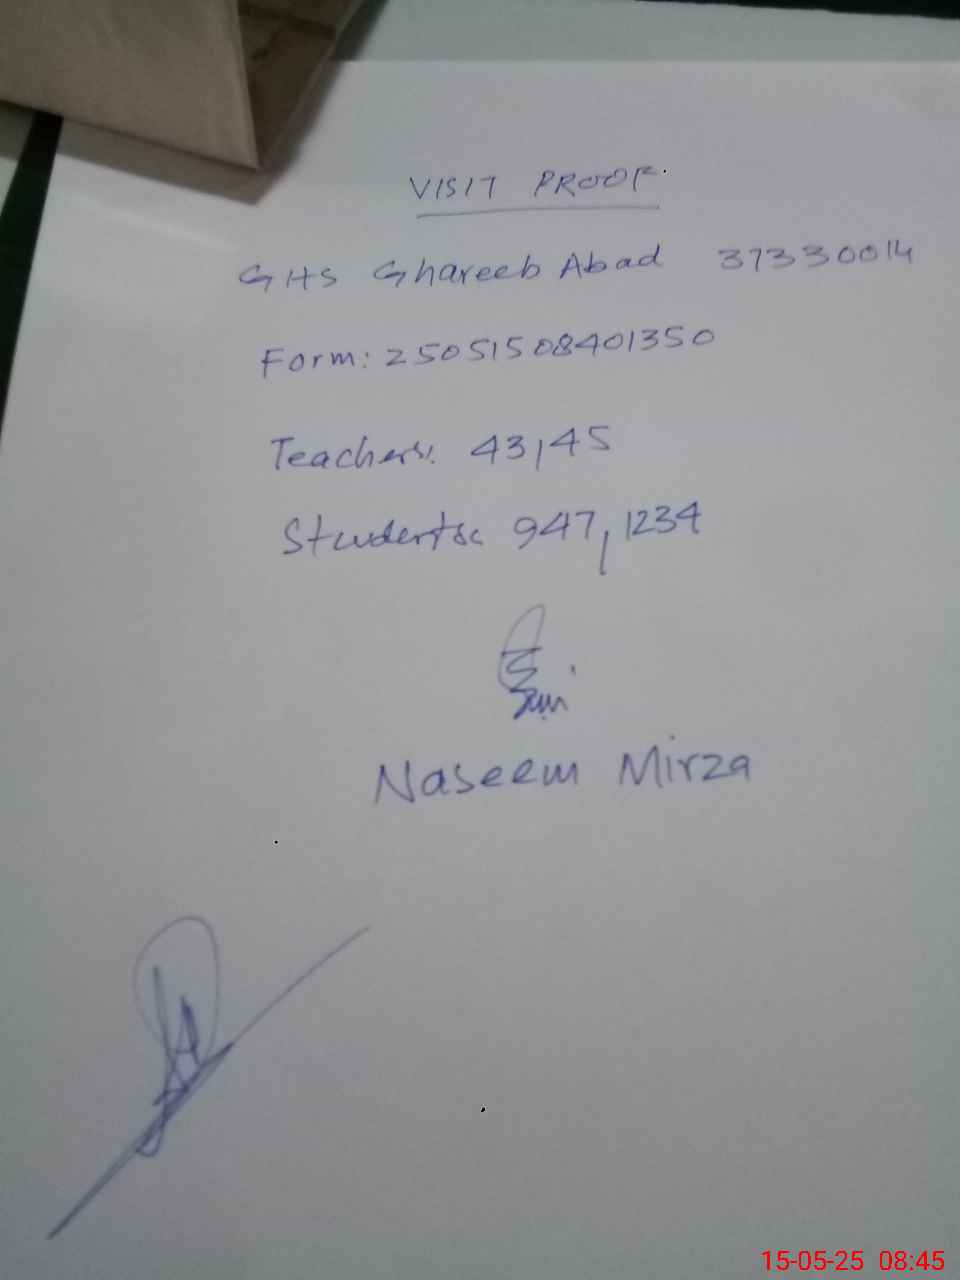 VISIT PROOF.
GHS Ghareeb Abad 37330014
Form: 25051508401350
Teachers: 43,45
Students: 947,1234
Naseem Mirza
15-05-25 08:45